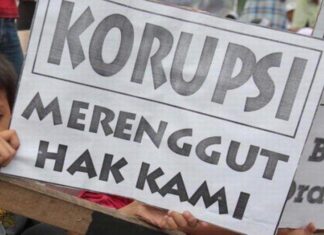 KORUPSI
MERENGGUT
HAK KAMI